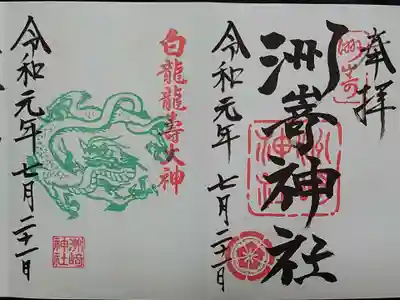 奉拝
洲崎
洲嵜神社
洲崎神社
令和元年 七月二十一日
白龍龍寿大神
令和元年 七月二十一日
洲崎神社